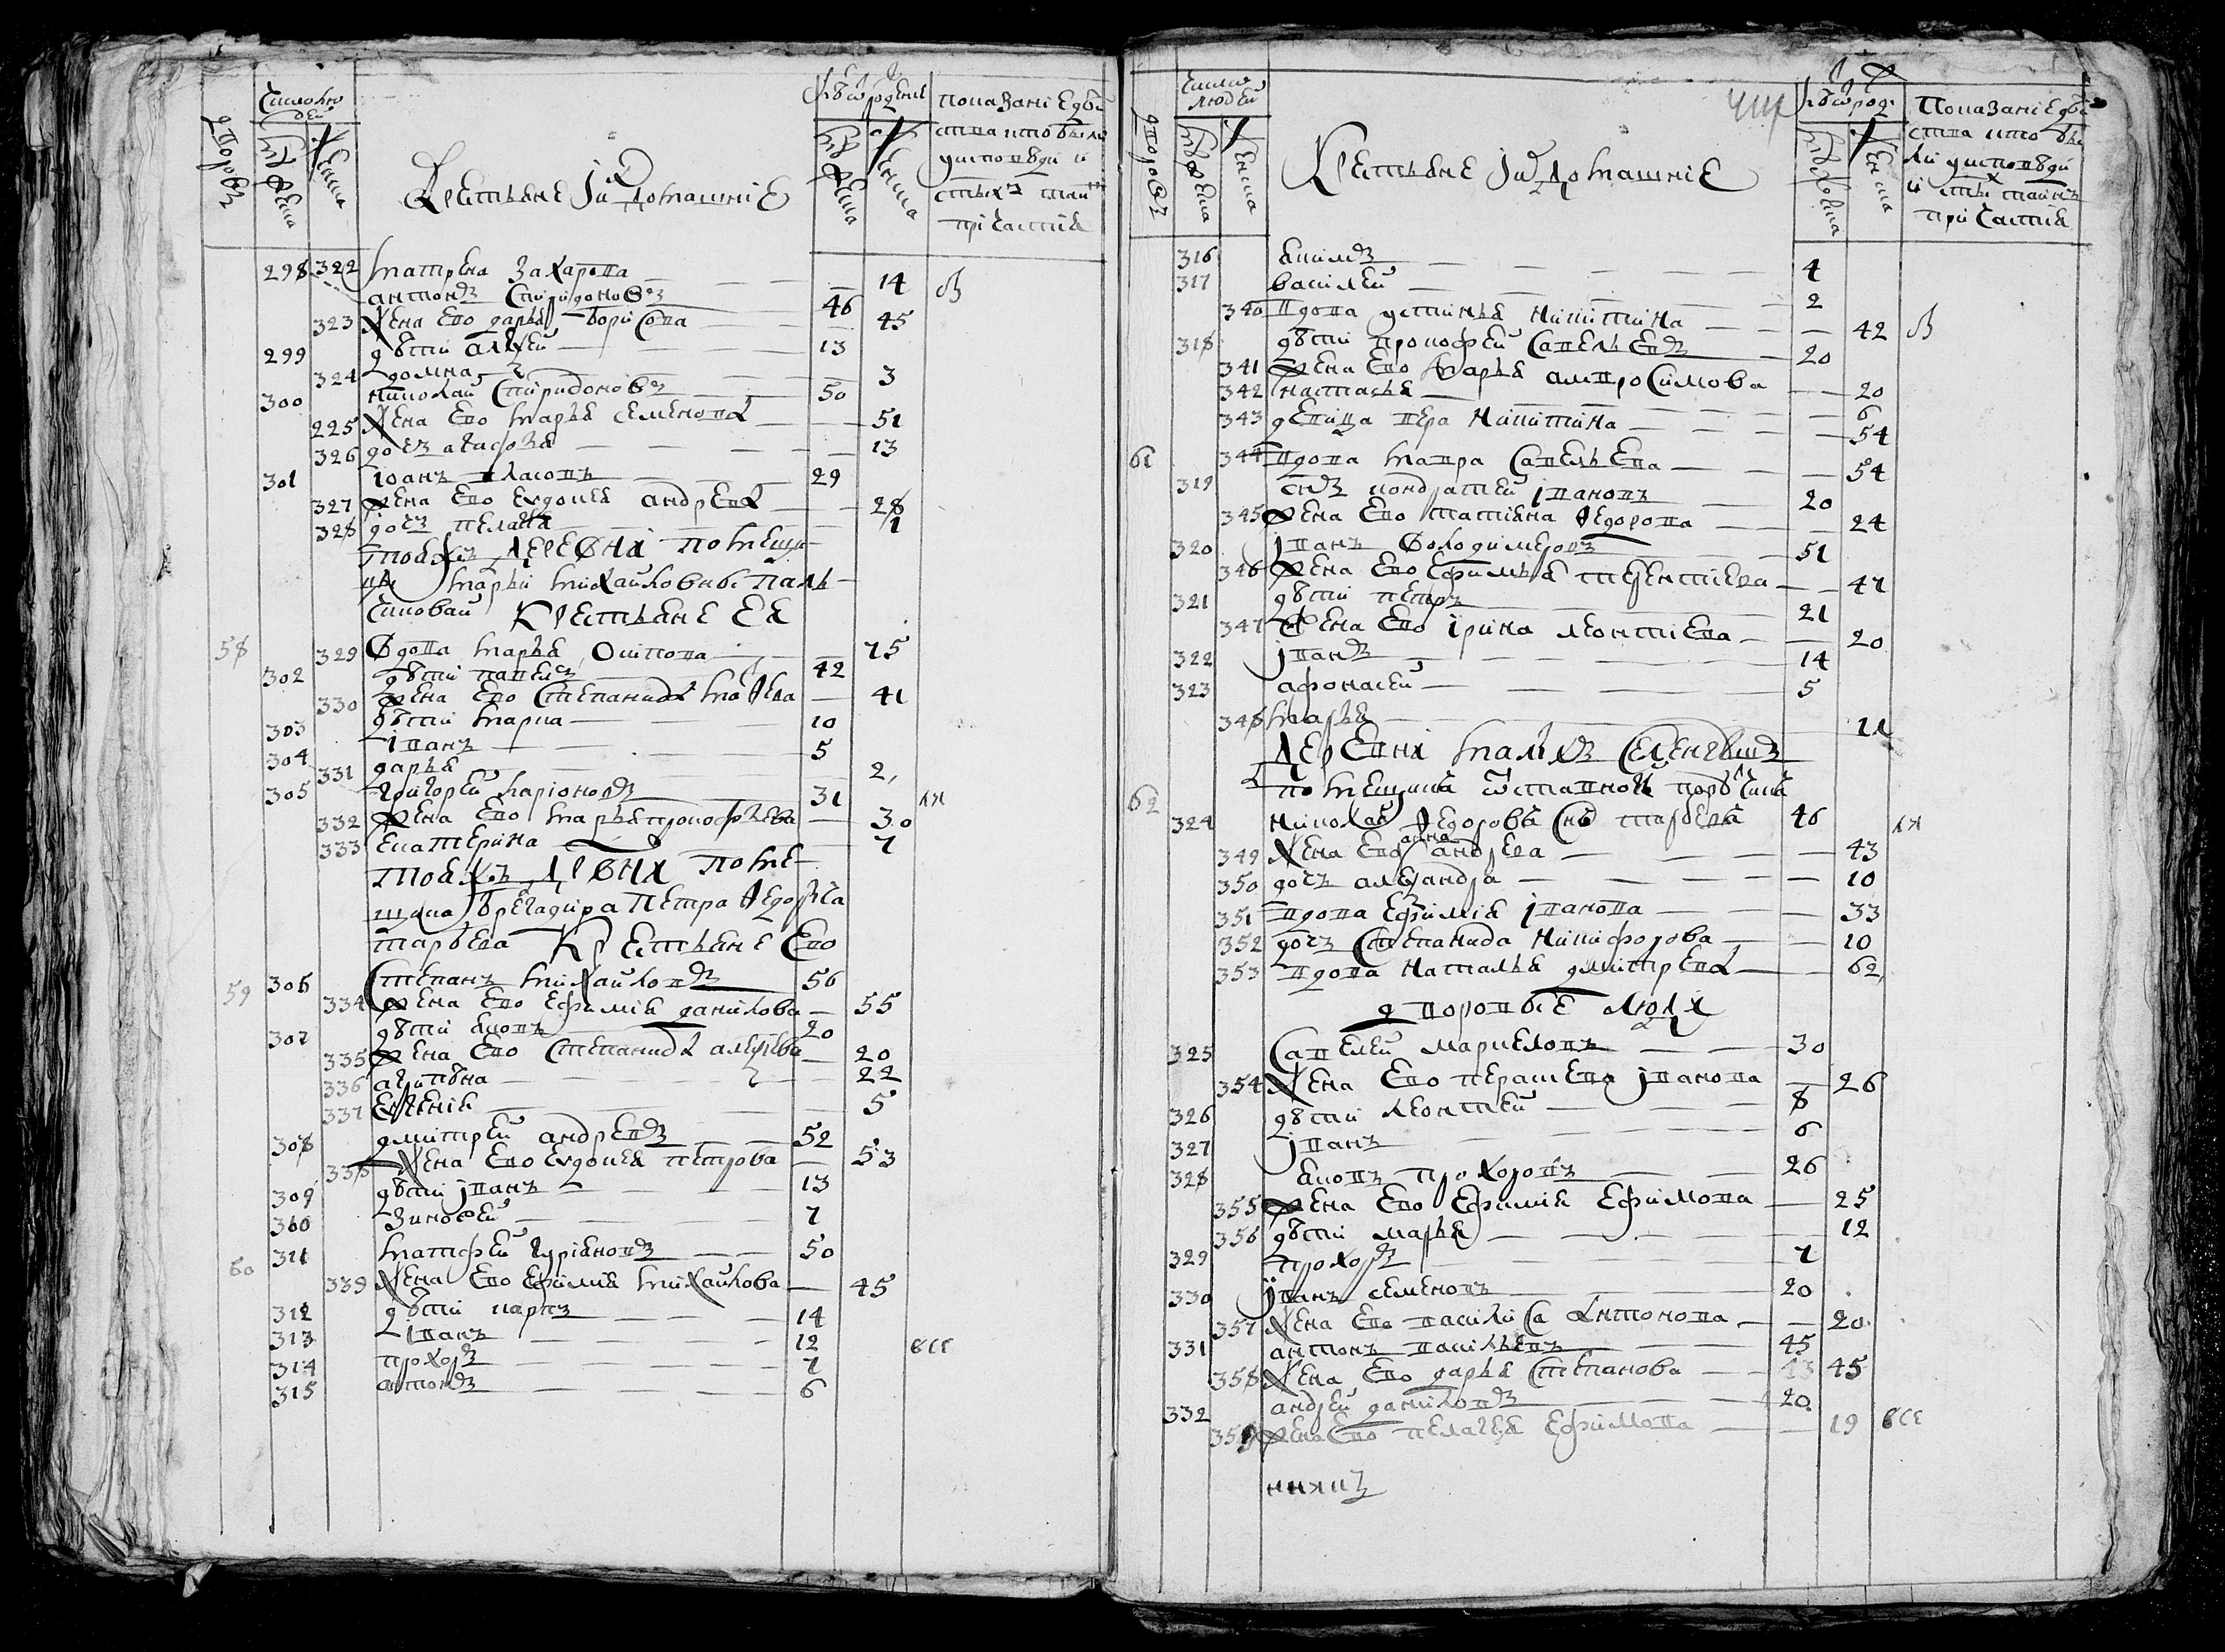 Число лю
дей
дворовъ
мужеска
женска
Крестьяне и их домашние
лѣт от рождения
мужеска
женска
показание дѣй
ства кто были
у исповѣди и
стых таин
причастия
322 матрена захарова — 14
298 антонъ спиридоновъ 46
323 жена ево дарья борисова — 45
299 дѣти алѣѯей — 13
324 домна — 3
300 николай спиридоновъ 50
225 жена ево марья семенова — 51
326 дочь агафья — 13
301 иоанъ власовъ 29
327 жена ево евдокия андреева — 28
328 дочь пелагея — 1
тоя ж деревни помещи
цы марьи михайловны
крестьяне ея
58 329 вдова марья — 75
302 дѣти 42
330 жена ево степанида — 41
303 дѣти марка — 10
304 иванъ — 5
331 дарья — 2
305 григорей ларионовъ 31
332 жена ево марья прокофьева — 30
333 екатерина — 7
тоя ж дрвни поме
щика брегадира петра федорыча
тарѣева крестьяне ево
59 306 степанъ михайловъ 56
334 жена ево ефимия данилова — 55
307 дѣти яковъ 20
335 жена ево степанида алеѯева — 20
336 агипѣна — 22
337 евгения — 5
308 дмитрей андреевъ 52
338 жена ево евдокия петрова — 53
309 дѣти иванъ — 13
310 зиновей — 7
60 311 матфей гурияновъ 50
339 жена ево ефимия михайлова — 45
312 дѣти карпъ 14
313 иванъ — 12
314 прохоръ — 7
315 антонъ — 6
Число
людей
дворовъ
мужеска
женска
Крестьяне и их домашние
лѣт от рож
мужеска
женска
показание дѣй
ства кто бы
ли у исповѣди
и стых таинъ
причастия
316 якимъ — 4
317 василей — 2
340 вдова устинья никитина — 42
318 дѣти прокофей савельевъ — 20
341 жена ево марья амвросимова — 20
342 настасья — 6
343 девица вера никитина — 54
61 344 вдова мавра савельева — 54
319 снъ кондратей ивановъ 20
345 жена ево татияна федорова — 24
320 иванъ володимеровъ 51
346 жена ево ефимья терентиева — 47
321 дѣти петръ 21
347 жена ево ирина леонтиева — 20
322 иванъ — 14
323 афонасей — 5
348 марья — 11
деревни
помещика
62 324 николай федоровъ снъ тарѣевъ 46
349 жена ево анна андреева — 43
350 дочь алеѯандра — 10
351 вдова ефимия иванова — 33
352 дочь степанида никифорова — 10
353 вдова наталья дмитрева — 62
дворовые люди
325 савелей маркеловъ — 30
354 жена ево иванова — 26
326 дѣти леонтей — 8
327 иванъ — 6
328 яковъ прохоровъ — 26
355 жена ево ефимия ефимова — 25
356 дѣти марья — 12
329 прохоръ — 7
330 иванъ семеновъ 20
357 жена ево василиса антонова — 20
331 антонъ васильевъ 45
358 жена ево дарья степанова — 45
332 андрей даниловъ 20
359 жена ево пелагея ефимова — 19